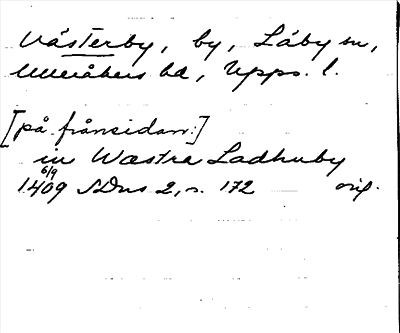 Västerby, by, Låby sn,
Ulleråkers hd, Upps. l.
[på frånsidan:]
in Wæstra Ladhuby
1409 6/9 SDns 2, s. 172 orig.